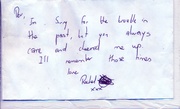 I'm Sorry for the trouble in
the past, but you always
came and cheered me up.
I'll remember those times
love
Rachel
xxx